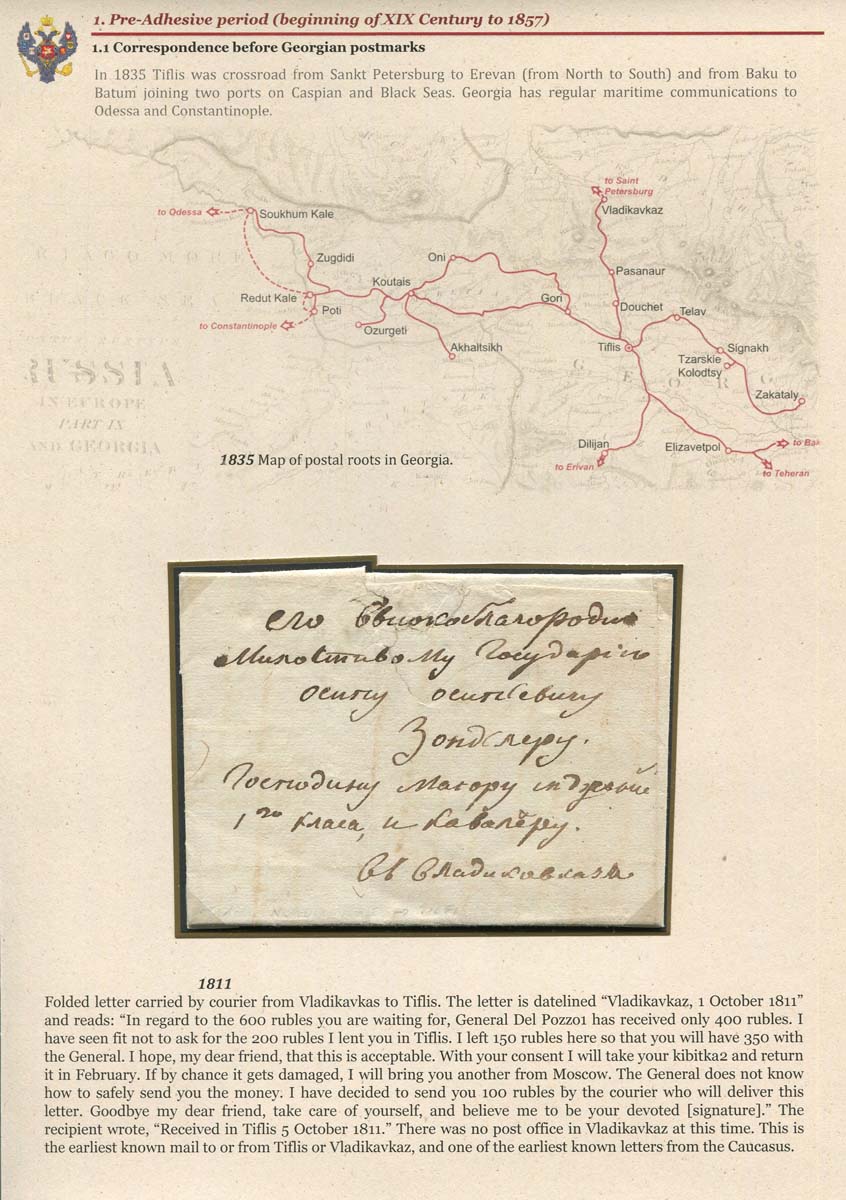 1. Pre-Adhesive period (beginning of XIX Century to 1857)
1.1 Correspondence before Georgian postmarks
In 1835 Tiflis was crossroad from Sankt Petersburg to Erevan (from North to South) and from Baku to
Batum joining two ports on Caspian and Black Seas. Georgia has regular maritime communications to
Odessa and Constantinople.
to Saint
Petersburg
to Odessa
Soukhum Kale
Vladikavkaz
Zugdidi
Oni
Pasanaur
Koutais
Redut Kale
Gori
Douchet
Poti
Telav
to Constantinople
Ozurgeti
Akhaltsikh
Tiflis
Signakh
Tzarskie
Kolodtsy
Zakataly
RUSSIA
IN EUROPE
PART IX
AND GEORGIA
GEORG
Dilijan
Elizavetpol
to Bak
to Erivan
to Teheran
1835 Map of postal roots in Georgia.
его Высокоблагородию
Милостивому Государю
осипу осиповичу
Зондлеру.
Господину маиору
1го класа, и кавалеру.
въ владиковказъ
1811
Folded letter carried by courier from Vladikavkas to Tiflis. The letter is datelined “Vladikavkaz, 1 October 1811”
and reads: “In regard to the 600 rubles you are waiting for, General Del Pozzo1 has received only 400 rubles. I
have seen fit not to ask for the 200 rubles I lent you in Tiflis. I left 150 rubles here so that you will have 350 with
the General. I hope, my dear friend, that this is acceptable. With your consent I will take your kibitka2 and return
it in February. If by chance it gets damaged, I will bring you another from Moscow. The General does not know
how to safely send you the money. I have decided to send you 100 rubles by the courier who will deliver this
letter. Goodbye my dear friend, take care of yourself, and believe me to be your devoted [signature].” The
recipient wrote, “Received in Tiflis 5 October 1811.” There was no post office in Vladikavkaz at this time. This is
the earliest known mail to or from Tiflis or Vladikavkaz, and one of the earliest known letters from the Caucasus.